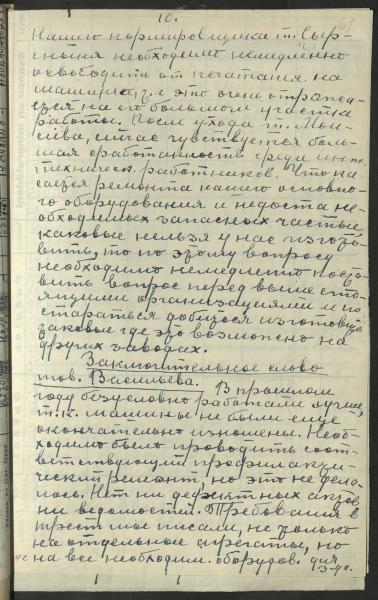 10.
61
Нашего нормировщика т. Сыр-
необходимо немедленно
освободить от печатания на
машинке, т.к. это очень отража-
ется на его большом участке
работы. После ухода т. Мои-
сеева, сейчас чувствуется боль-
шая сработанность среди инже.
техническ. работников. Что ка-
сается ремонта нашего основно-
го оборудования и недоста не-
обходимых запасных частей,
каковые нельзя у нас изгото-
вить, то по этому вопросу
необходимо немедленно поста-
вить вопрос перед выше сто-
ящими организациями и по-
стараться добиться изготовить
таковые где это возможно на
других заводах.
Заключительное слово
тов. Васильева. В прошлом
году безусловно работали лучше,
т.к. машины не были еще
окончательно изношены. Необ-
ходимо было проводить соот-
ветствующий профилакти-
ческий ремонт, но это не дела-
лось. Нет ни дефектных актов,
ни ведомостей. Требования в
трест мы писали, не только
на отдельные агрегаты, но
на все необходим. оборудов. для
з-да.